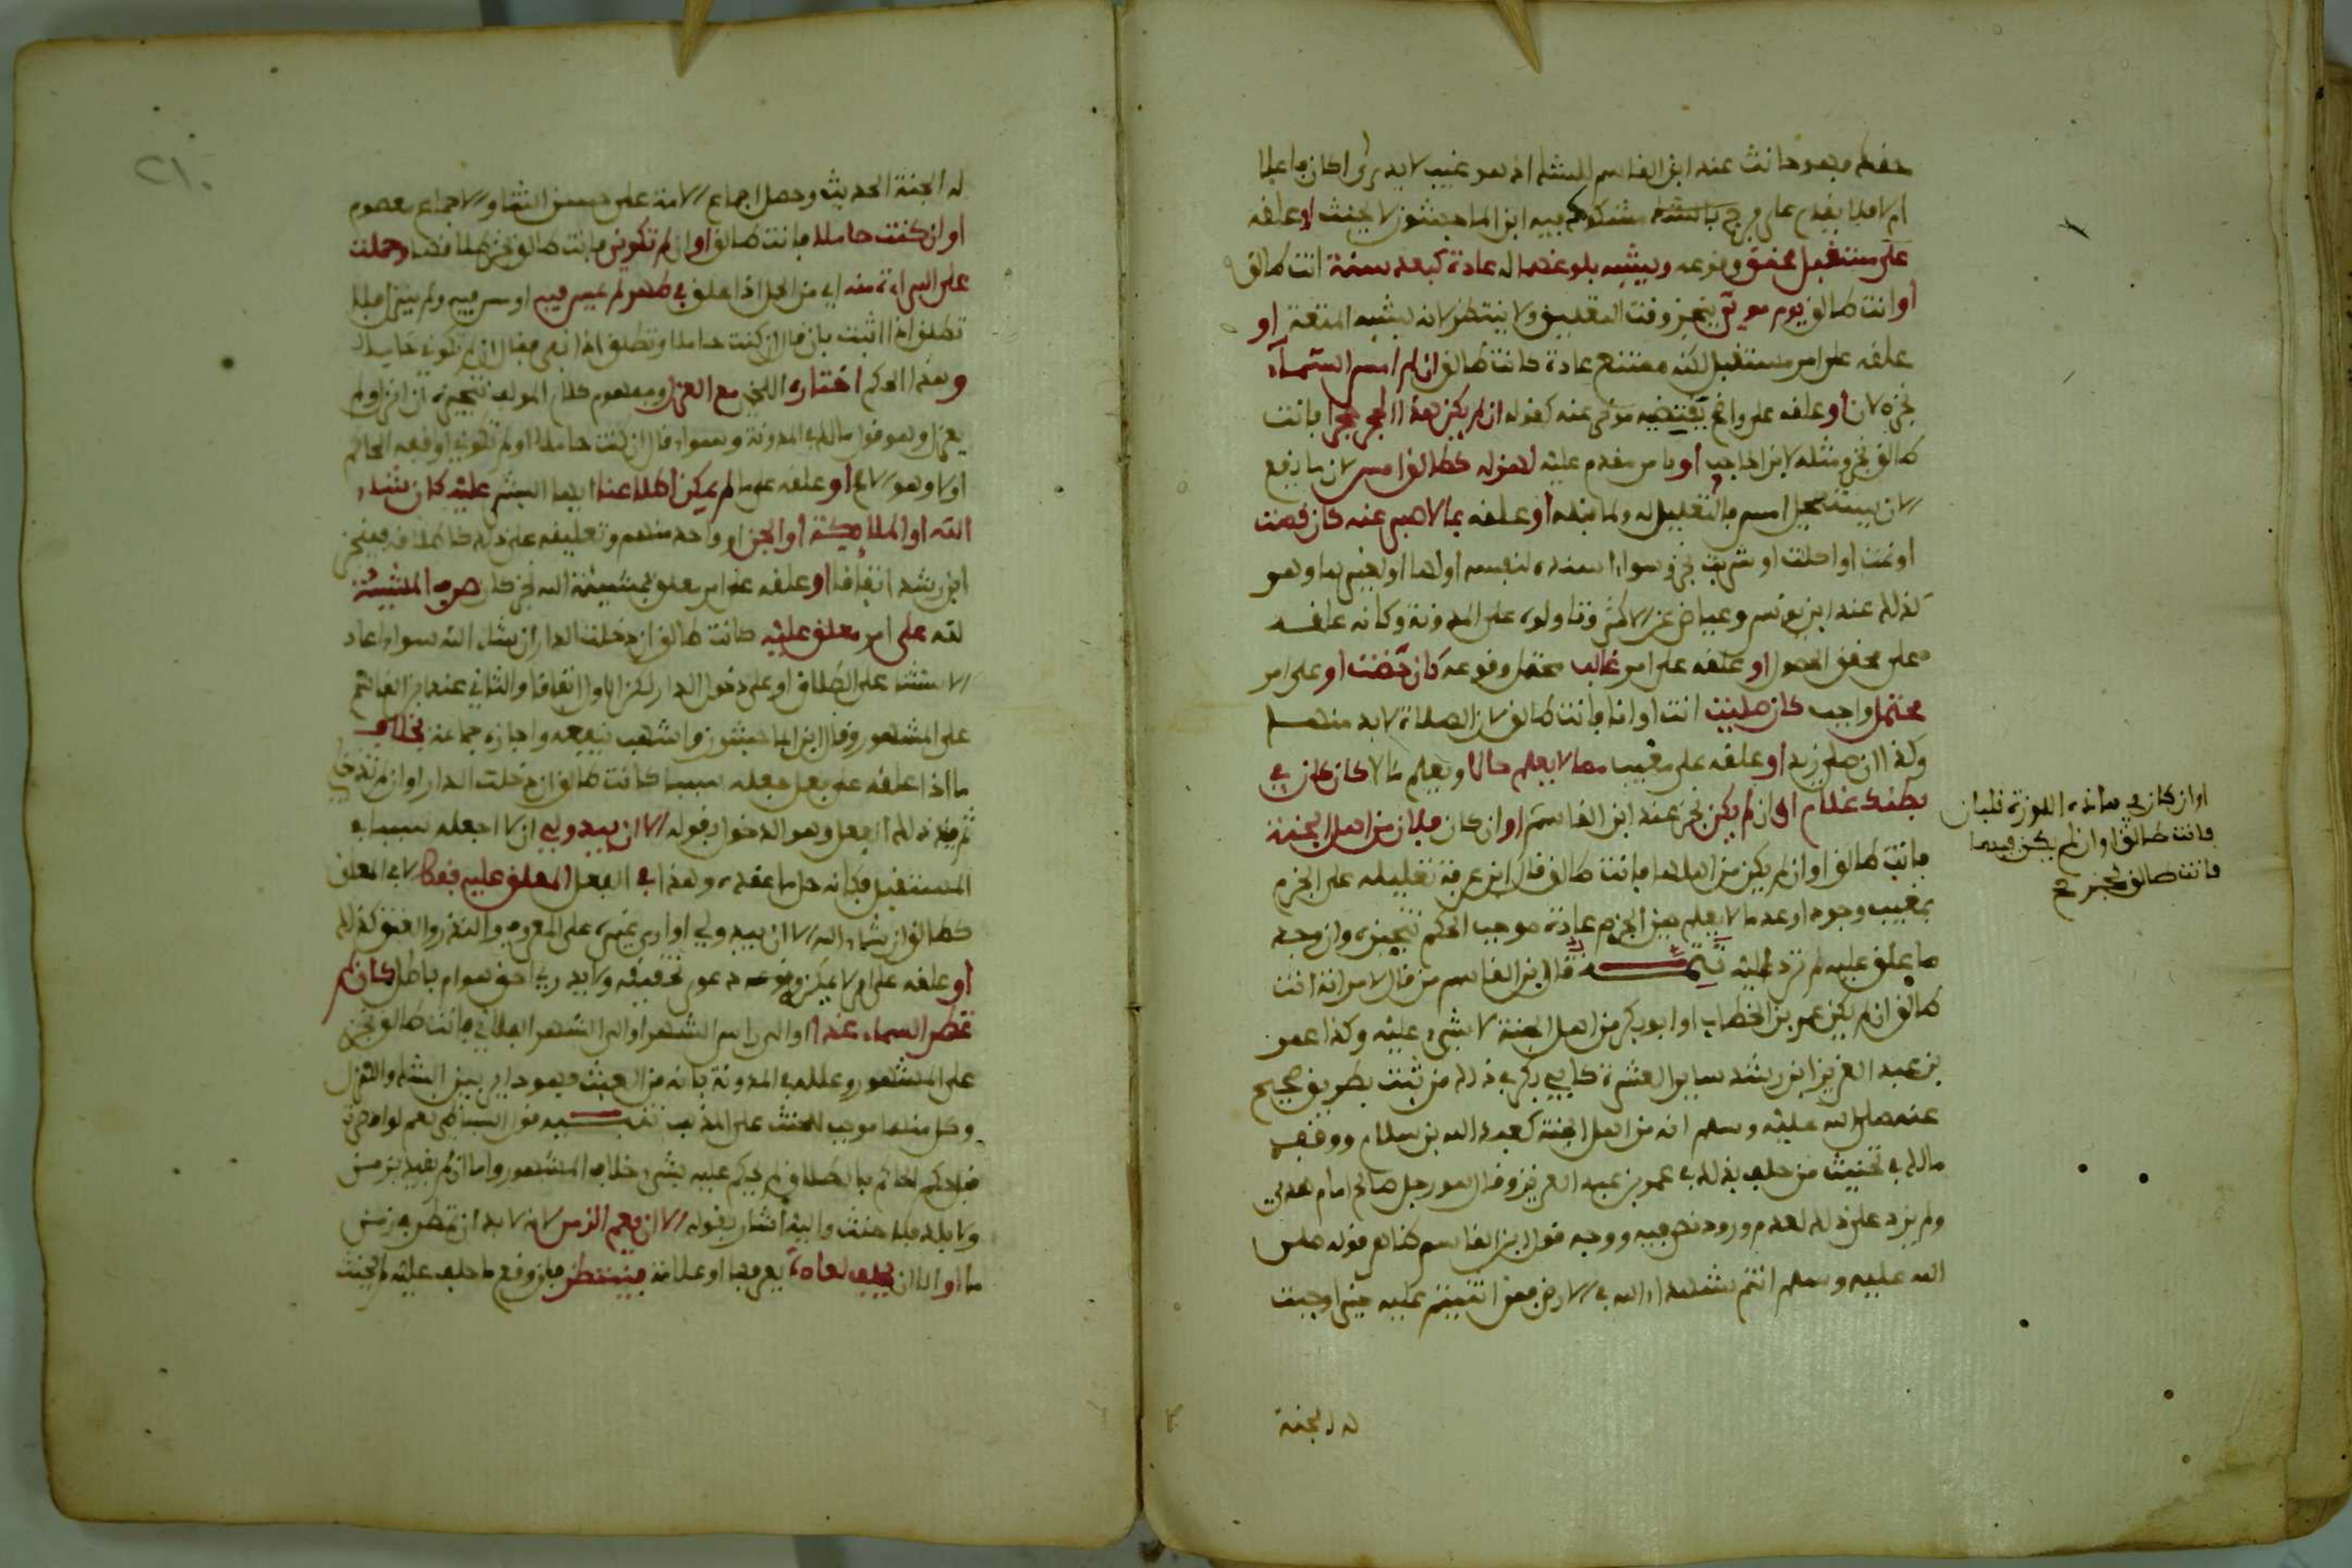 حقكم فهو حانث عند ابن القاسم للشك اذ هو غيب لا يدرى اكان فاعلا
ام لا فلا يقدم على فرج مشكوك فيه ابن الماجشون لا يحنث او علقه
على مستقبل محقق وقوعه ويشبه بلوغهما له عادة كبعد سنة انت طالق
او انت طالق يوم موتي ينجز وقت التعليق ولا ينتظر لانه يشبه المتعة او
علقه على امر مستقبل لكنه ممتنع عادة كانت طالق ان لم امس السماء
نجزه لان او علقه على واقع نقيضه مؤخر عنه كقوله ان لم يكن هذا الحجر حجرا فانت
طالق نجز ومثله لابن الحاجب او بامر مقدم عليه لهزله كطالق امس لان ما رفع
او علقه بما لا صبر عنه كان قمت
او نمت او اكلت او شربت نجز سواء اسنده لنفسه او لها او لغيرهما وهو
كذلك عند ابن يونس وعياض عن الاكثر وتاولوه على المدونة وكانه علقه
على محقق الحصول او علقه على امر غالب محتمل وقوعه كان حضت او على امر
محتمل واجب كان صليت انت او انا فانت طالق لان الصلاة لا بد منها
وكذا ان صلى زيد او علقه على مغيب مما لا يعلم حالا ويعلم مآلا كان كان في
بطنك غلام او ان لم يكن نجز عند ابن القاسم او ان كان فلان من اهل الجنة
فانت طالق او ان لم يكن من اهلها فانت طالق قال ابن عرفة تعليله على الجزم
بمغيب وجود او عدم ما لا يعلم حين الجزم عادة موجب الحكم تنجيزه وان وجد
ما علق عليه لم ترد اليه تتمة قال ابن القاسم من قال لامراته انت
طالق ان لم يكن عمر بن الخطاب او ابو بكر من اهل الجنة لا شيء عليه وكذا عمر
بن عبد العزيز ابن رشد ساير العشرة كابي بكر في ذلك من ثبت بطريق صحيح
عنه صلى الله عليه وسلم انه من اهل الجنة كعبد الله بن سلام ووقف
مالك في تحنيث من حلف بذلك في عمر بن عبد العزيز وقال هو رجل صالح امام هدى
ولم يزد على ذلك لعدم ورود نص فيه ووجه قول ابن القاسم ظاهر قوله صلى
الله عليه وسلم انتم شهداء الله في الارض فمن اثنيتم عليه خيرا وجبت
له الجنة
او ان كان في هذه اللوزة قلبان
فانت طالق او ان لم يكن فيها
فانت طالق نجز صح
٢١٠
له الجنة الحديث وحصل اجماع الامة على حسن الثناء والاجماع معصوم
او ان كنت حاملا فانت طالق او ان لم تكوني فانت طالق نجز طلاقها وحملت
على البراءة منه اي من الحمل اذا علق في طهر لم يمس فيه او مس فيه ولم ينزل فلا
تطلق اذا اثبت بان قال ان كنت حاملا وتطلق اذا نفى فقال ان لم تكوني حاملا
وهذا الحكم اختاره اللخمي مع العزل ومفهوم كلام المؤلف تنجيزه ان انزل ولم
يعزل وهو قول مالك في المدونة وسواء قال ان كنت حاملا او لم تكوني اوقعه الحاكم
اولا وهو الاصح او علقه على ما لم يمكن اطلاعنا ايها البشر عليه كان شاء
الله او الملايكة او الجن او واحد منهم وتعليقه على ذلك كاطلاقه فينجز
ابن رشد اتفاقا او علقه على امر معلق بمشيئة الله نجز كان صرف المشيئة
لله على امر معلق عليه كانت طالق ان دخلت الدار ان شاء الله سواء اعاد
الاستثنا على الطلاق او على دخول الدار لكن الاول اتفاقا والثاني عند ابن القاسم
على المشهور وقال ابن الماجشون واشهب ينفعه واختاره جماعة بخلاف
ما اذا علقه على فعل جعله سببا كانت طالق ان دخلت الدار او ان لم تدخلي
ثم قيد ذلك الفعل وهو الدخول بقوله الا ان يبدو لي ان لا اجعله سببا في
المستقبل فكانه حل ما عقده وهذا في الفعل المعلق عليه فقط لا في المعلق
كطالق ان شاء الله الا ان يبدو لي او ارى غيره على المعروف والنذر والعتق كذلك
او علقه على امر لا يمكن وقوعه دعوى تحقيقه ولا يدرى احق هو ام باطل كان لم
تمطر السماء غدا او الى راس الشهر او الى الشهر الفلاني فانت طالق نجز
على المشهور وعلله في المدونة بانه من الغيب فهو داير بين الشك والهزل
وكل منهما موجب للحنث على المذهب تنبيه قول البساطي نعم لو
فيحكم الحاكم بالطلاق لم يحكم عليه بشيء خلاف المشهور واما ان لم يقيد بزمن
ولا بلد فلا حنث واليه اشار بقوله الا ان يعم الزمن لانه لا بد ان تمطر في زمن
ما او الا ان يحلف لعادة يعرفها او علامة فينتظر فان وقع ما حلف عليه لم يحنث